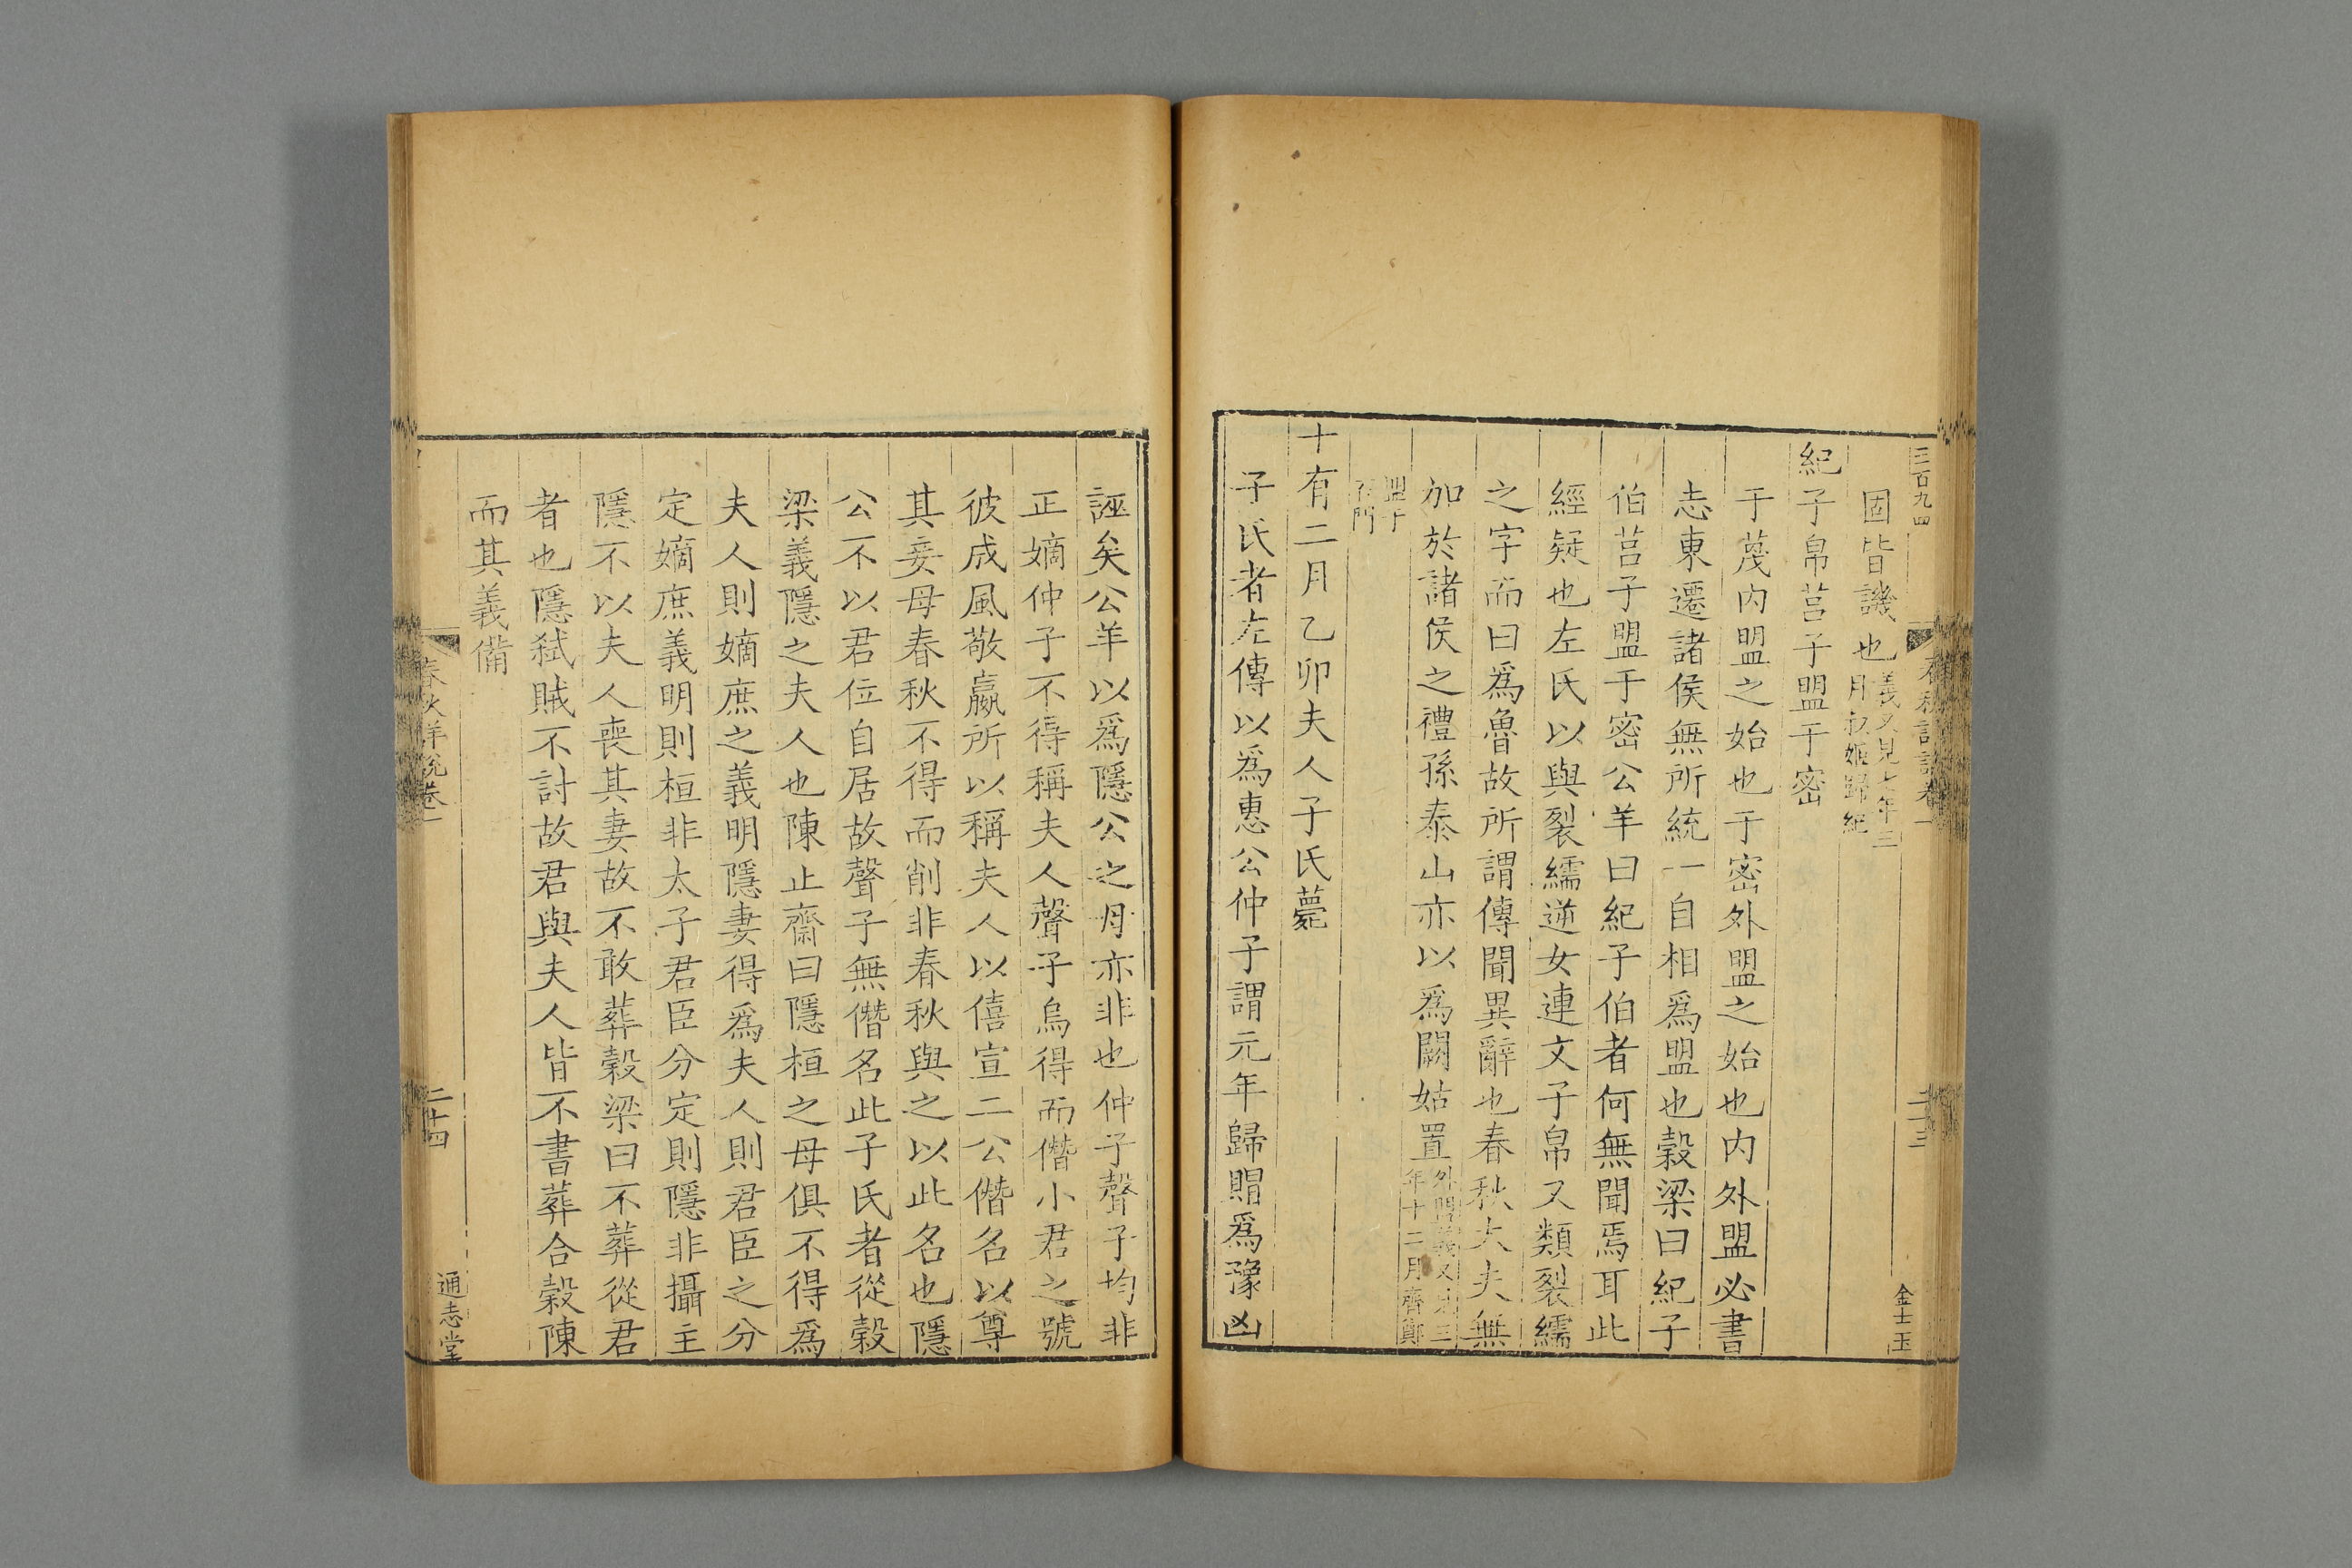 三百九四
春秋詳說卷一
二十三
金士玉
固皆譏也義又見七年三月叔姬歸紀
紀子帛莒子盟于密
于蔑内盟之始也于密外盟之始也内外盟必書
志東遷諸侯無所統一自相爲盟也穀梁曰紀子
伯莒子盟于密公羊曰紀子伯者何無聞焉耳此
經疑也左氏以與裂繻逆女連文子帛又類裂繻
之字而曰爲魯故所謂傳聞異辭也春秋大夫無
加於諸侯之禮孫泰山亦以爲闕姑置外盟義又見三年十二月齊鄭
盟于石門
十有二月乙卯夫人子氏薨
子氏者左傳以爲惠公仲子謂元年歸賵爲豫凶
誣矣公羊以爲隱公之母亦非也仲子聲子均非
正嫡仲子不得稱夫人聲子烏得而僭小君之號
彼成風敬嬴所以稱夫人以僖宣二公僭名以尊
其妾母春秋不得而削非春秋與之以此名也隱
公不以君位自居故聲子無僭名此子氏者從穀
梁義隱之夫人也陳止齋曰隱桓之母俱不得爲
夫人則嫡庶之義明隱妻得爲夫人則君臣之分
定嫡庶義明則桓非太子君臣分定則隱非攝主
隱不以夫人喪其妻故不敢葬穀梁曰不葬從君
者也隱弑賊不討故君與夫人皆不書葬合穀陳
而其義備
春秋詳說卷一
二十四
通志堂